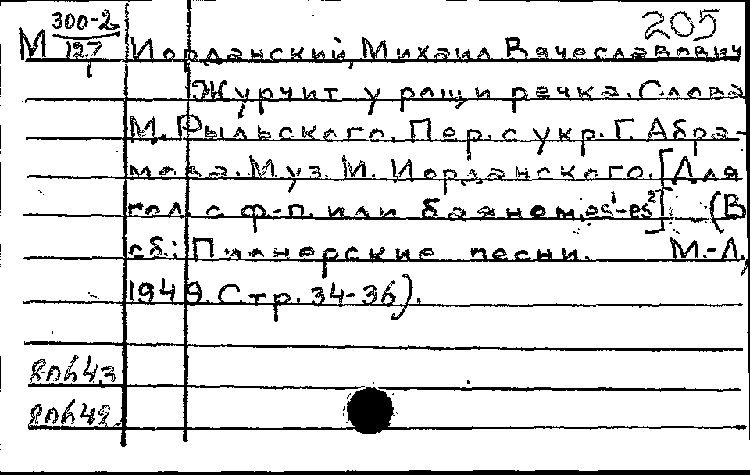 205
М 300-2/127 Иорданский, Михаил Вячеславович
1 Журчит у рощи речка. Слова
М. Рыльского. Пер. с укр. Г. Абра-
мова. Муз. М. Иорданского. [Для
гол. с ф-п. или баяном, es¹-es²] (В
сб: Пионерские песни. М.-Л.,
1949. Стр. 34-36).